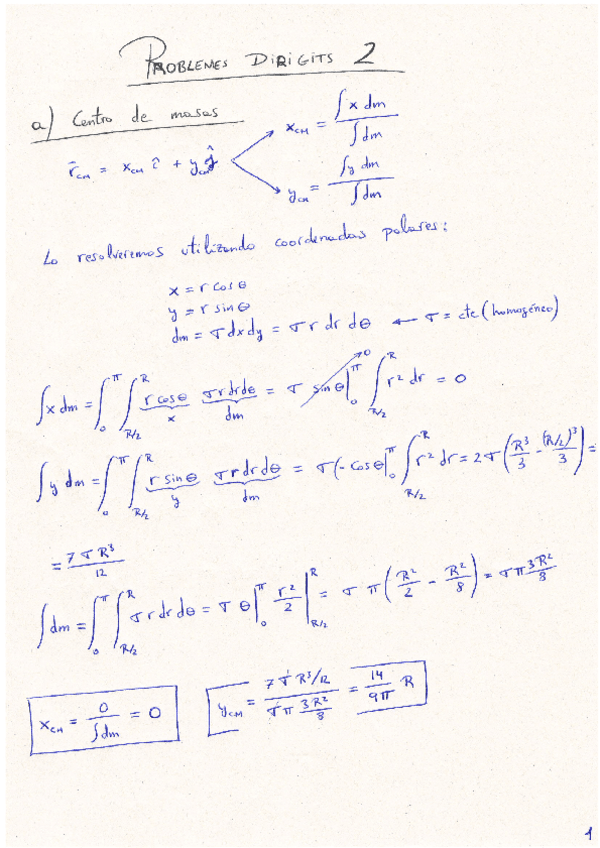 PROBLEMES DIRIGITS 2
a) Centro de masas
r̄_CM = x_CM î + y_CM ĵ
x_CM = ∫x dm / ∫dm
y_CM = ∫y dm / ∫dm
Lo resolveremos utilizando coordenadas polares:
x = r cos θ
y = r sin θ
dm = σ dx dy = σ r dr dθ ← σ = cte (homogéneo)
∫x dm = ∫_0^π ∫_{R/2}^R r cos θ (x) σ r dr dθ (dm) = σ sin θ|_0^π (→ 0) ∫_{R/2}^R r² dr = 0
∫y dm = ∫_0^π ∫_{R/2}^R r sin θ (y) σ r dr dθ (dm) = σ (-cos θ|_0^π ∫_{R/2}^R r² dr = 2σ (R³/3 - (R/2)³/3) =
= 7σR³/12
∫dm = ∫_0^π ∫_{R/2}^R σ r dr dθ = σ θ|_0^π r²/2|_{R/2}^R = σ π (R²/2 - R²/8) = σ π 3R²/8
x_CM = 0/∫dm = 0
y_CM = (7σR³/12) / (σπ 3R²/8) = 14/9π R
1